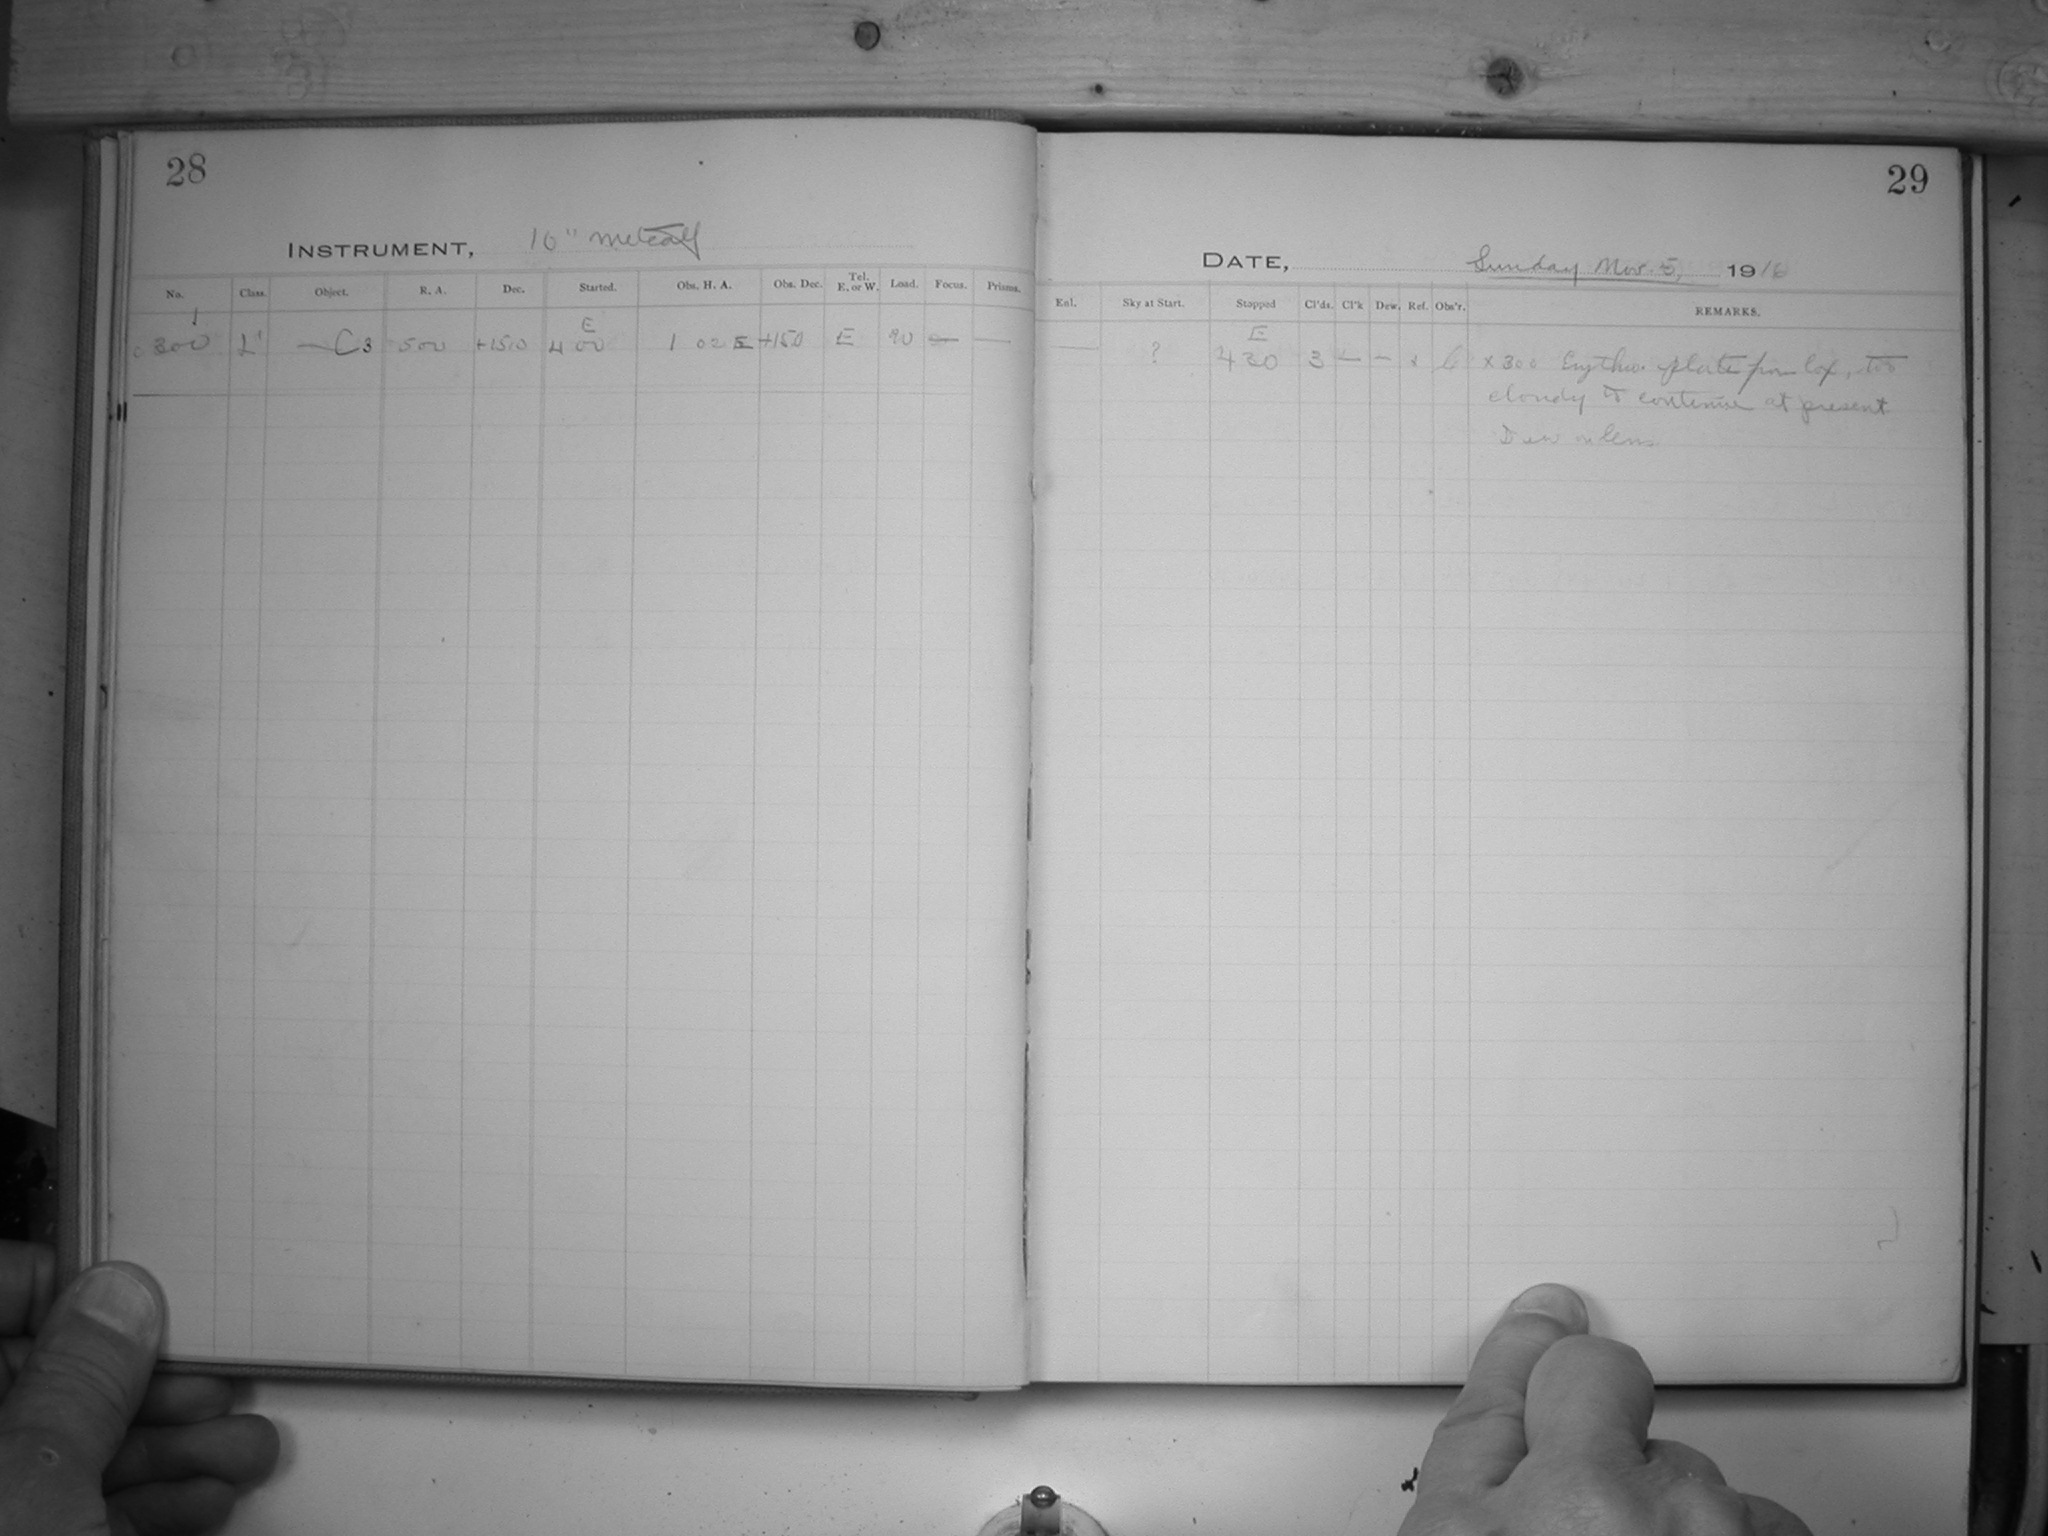 28
INSTRUMENT, 10" Metcalf
No. Class. Object. R. A. Dec. Started. Obs. H. A. Obs. Dec. Tel. E. or W. Load. Focus. Prisms.
1 E
300 L' — C3 500 +150 4 00 1 02 E +150 E 90 — —
29
DATE, Sunday Nov. 5, 1916
Enl. Sky at Start. Stopped Cl'ds. Cl'k Dew. Ref. Obs'r. REMARKS.
E
— ? 430 3 — — x x 300 Erythro. plate from box, too
cloudy to continue at present
Dew on lens